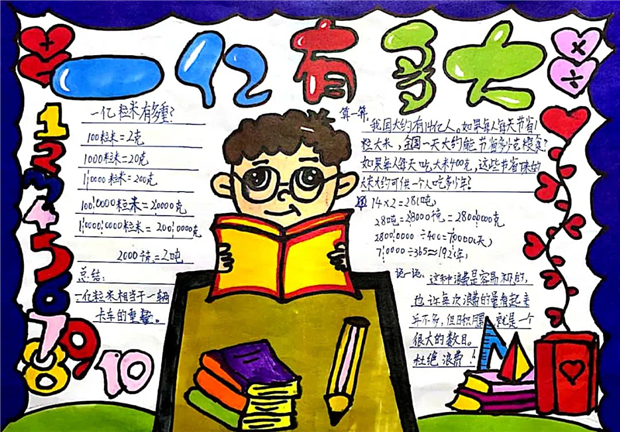 一亿有多大
一亿粒米有多重?
100粒米=2克
1000粒米=20克
10000粒米=200克
1000000粒米=20000克
100000000粒米=2000000克
2000千克=2吨
总结:
一亿粒米相当于一辆
卡车的重量。
算一算
我国大约有14亿人。如果每人每天节省1
粒大米,全国一天大约能节省多少
如果每人每天吃大米400克,这些节省
大米大约可供一个人吃多少年?
14×2=28(吨)
28吨=28000千克=28000000克
28000000÷400=70000(天)
70000÷365≈192(年)
说一说:这种浪费是容易
也许每次浪费的量看起来
并不多,但日积月累,就是一个
很大的数目。
杜绝浪费!
1
2
3
4
5
6
7
8
9
10